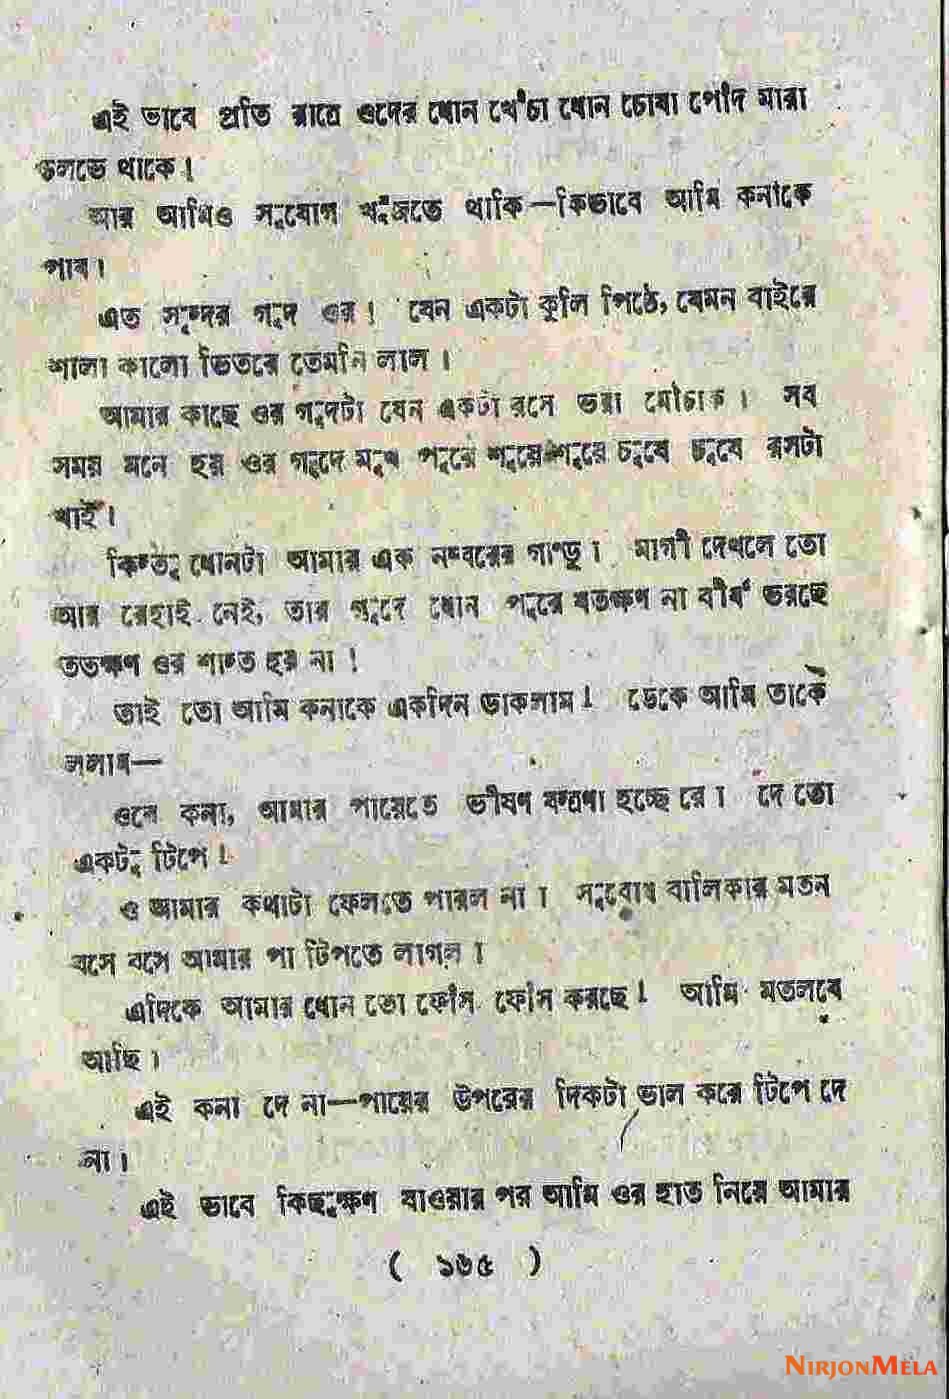 এই ভাবে প্রতি রাত্রে ওদের ধোন খেঁচা ধোন চোষা পোঁদ মারা
চলতে থাকে।
আর আমিও সুযোগ খুঁজতে থাকি—কিভাবে আমি কনাকে
পাব।
এত সুন্দর গুদ ওর! যেন একটা কুলি পিঠে, যেমন বাইরে
শালা কালো ভিতরে তেমনি লাল।
আমার কাছে ওর গুদটা যেন একটা রসে ভরা মৌচাক। সব
সময় মনে হয় ওর গুদে মুখ পুরে শুয়ে শুয়ে চুষে চুষে রসটা
খাই।
কিন্তু ধোনটা আমার এক নম্বরের গাণ্ডু। মাগী দেখলে তো
আর রেহাই নেই, তার গুদে ধোন পুরে যতক্ষণ না বীর্য ভরছে
ততক্ষণ ওর শান্ত হয় না!
তাই তো আমি কনাকে একদিন ডাকলাম! ডেকে আমি তাকে
ললাব—
ওরে কনা, আমার পায়েতে ভীষণ যন্ত্রণা হচ্ছে রে। দে তো
একটু টিপে!
ও আমার কথাটা ফেলতে পারল না। সুবোধ বালিকার মতন
বসে বসে আমার পা টিপতে লাগল।
এদিকে আমার ধোন তো ফোঁস ফোঁস করছে! আমি মতলবে
আছি।
এই কনা দে না—পায়ের উপরের দিকটা ভাল করে টিপে দে
না।
এই ভাবে কিছুক্ষণ যাওয়ার পর আমি ওর হাত নিয়ে আমার
( ১৬৫ )
NIRJONMELA